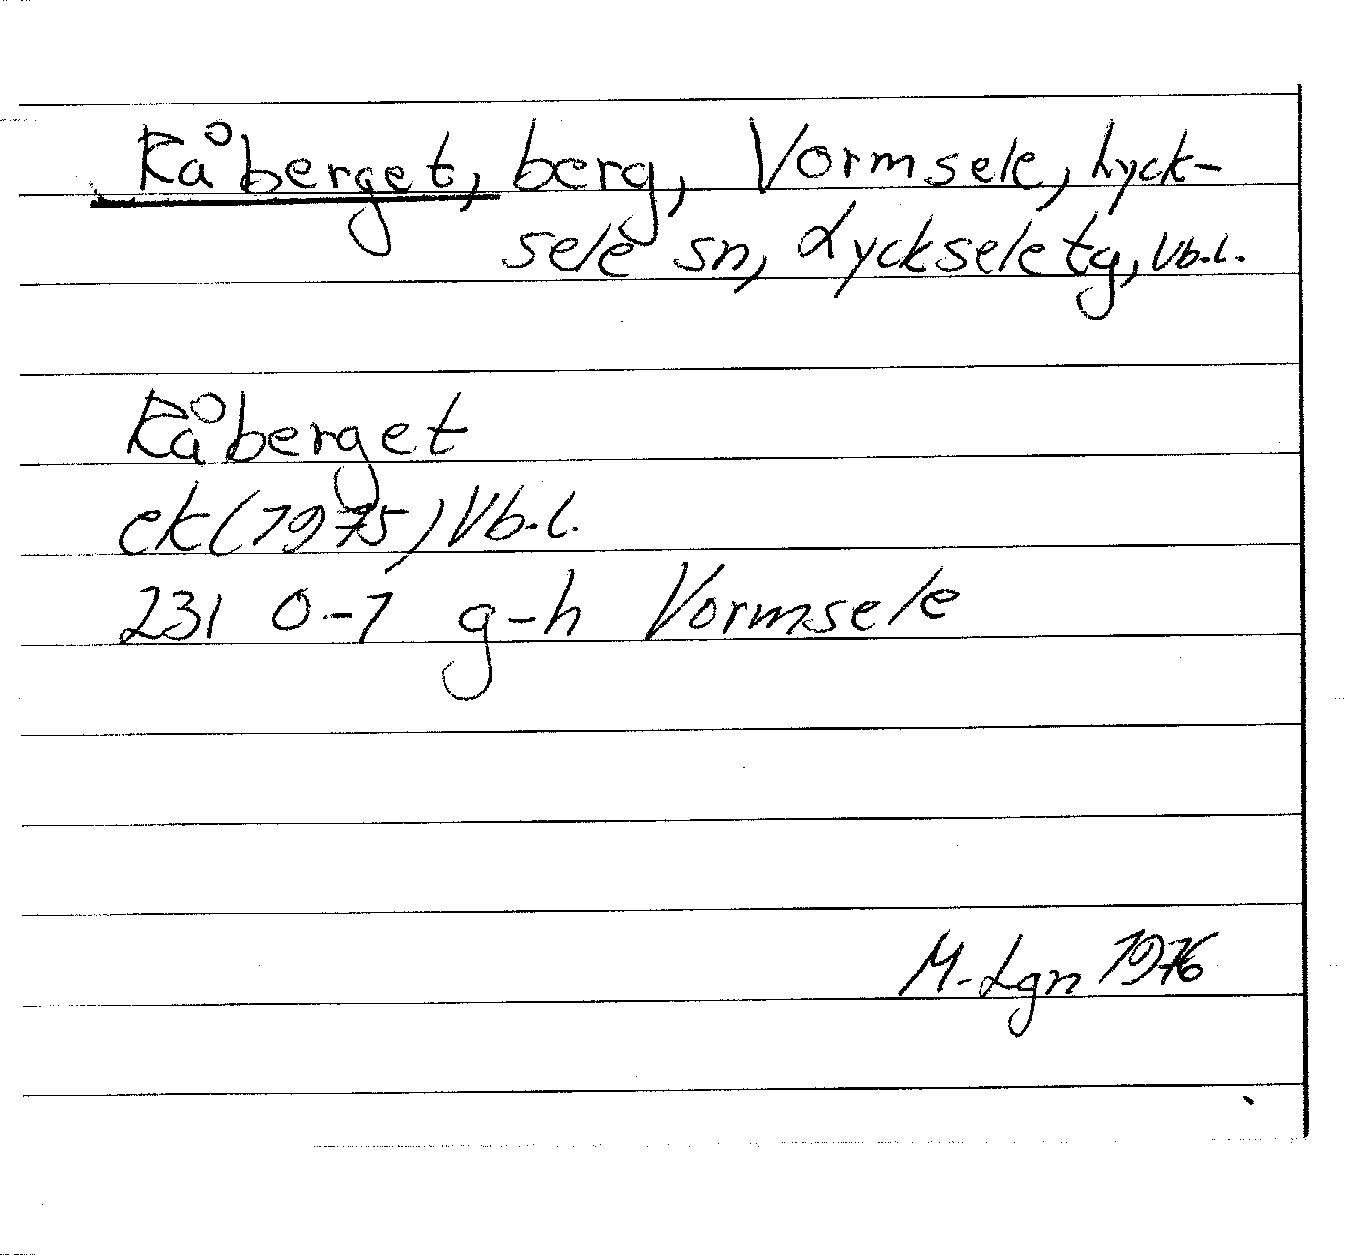 Råberget, berg, Vormsele, Lyck-
sele sn, Lycksele tg, Vb.l.
Råberget
ek(1975)Vb.l.
231 0-1 g-h Vormsele
M-Lgn 1976